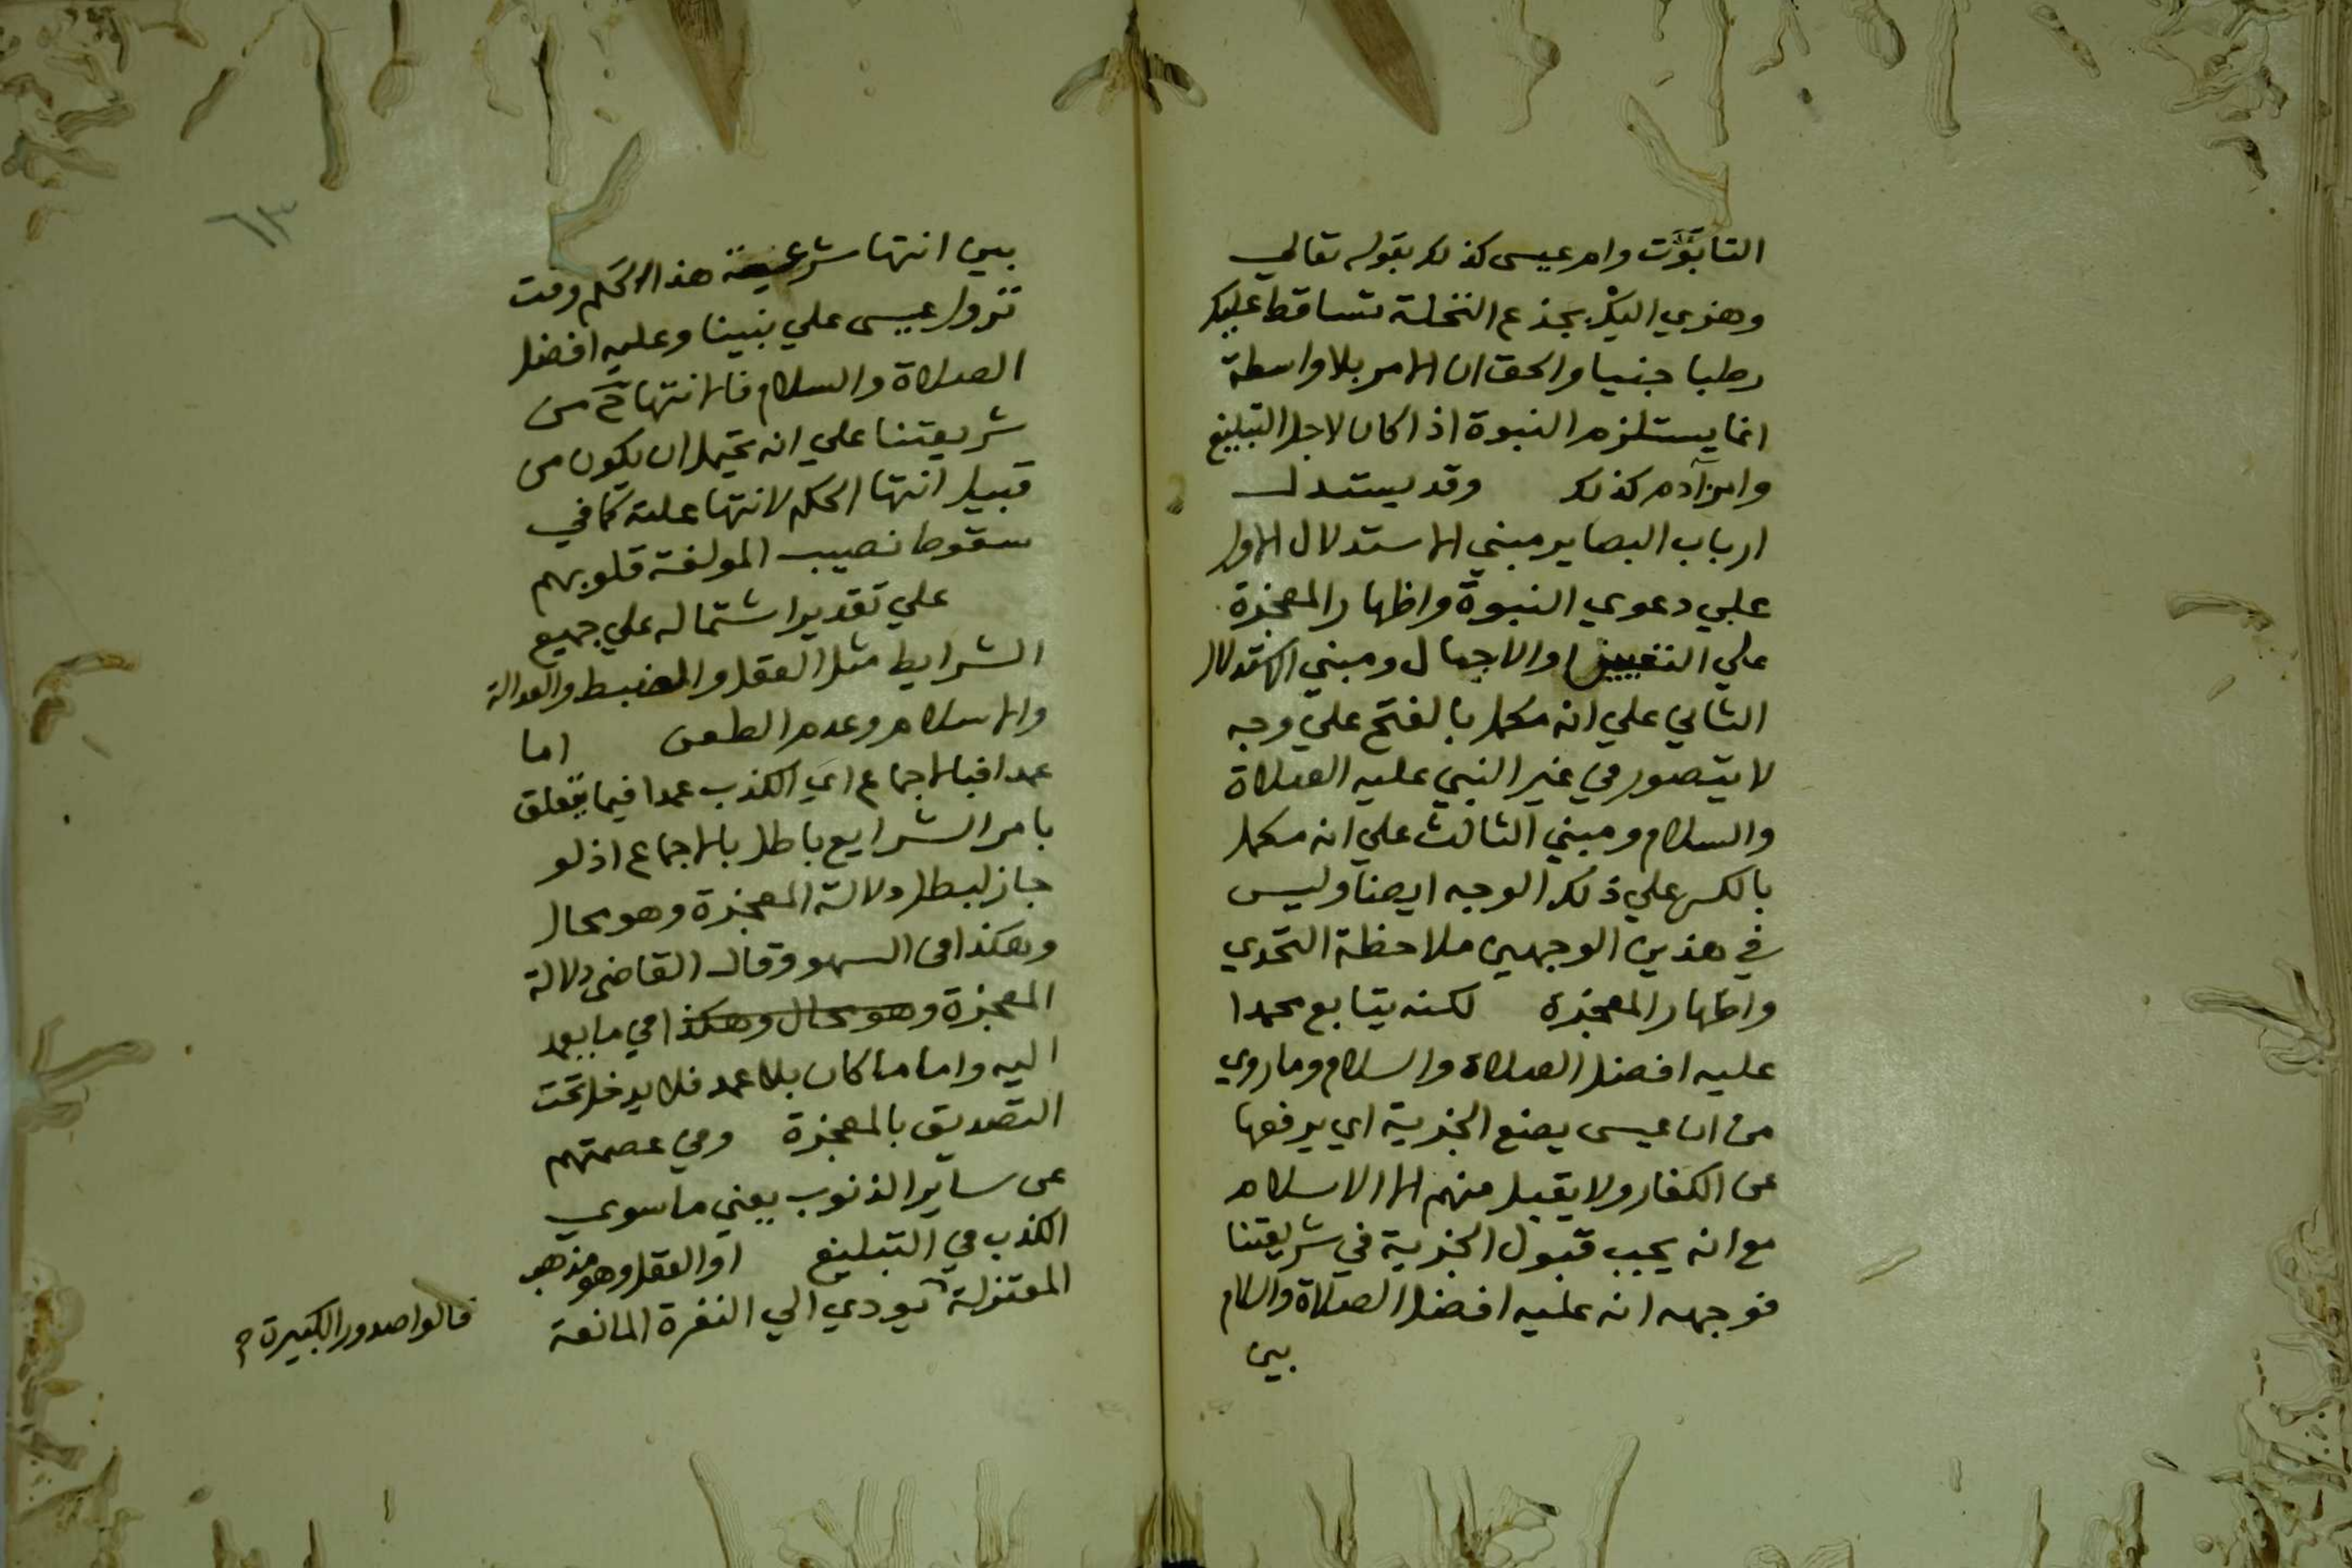 التابوت وام عيسى كذلك بقوله تعالي
وهزي اليك بجذع النخلة تساقط عليك
رطبا جنيا والحق ان الامر بلا واسطة
انما يستلزم النبوة اذا كان لاجل التبليغ
وامر آدم كذلك وقد يستدل
ارباب البصاير مبني الاستدلال الاول
علي دعوي النبوة واظهار المعجزة
علي التعيين او الاجمال ومبني الاستدلال
الثاني علي انه مكمل بالفتح علي وجه
لا يتصور في غير النبي عليه الصلاة
والسلام ومبني الثالث علي انه مكمل
بالكسر علي ذلك الوجه ايضا وليس
في هذين الوجهين ملاحظة التحدي
واظهار المعجزة لكنه يتابع محمدا
عليه افضل الصلاة والسلام وما روي
من ان عيسى يضع الجزية اي يرفعها
عن الكفار ولا يقبل منهم الا الاسلام
مع انه يجب قبول الجزية في شريعتنا
فوجهه انه عليه افضل الصلاة والسلام
بين
٦٣
بين انتها شرعية هذا الحكم وقت
نزول عيسى علي نبينا وعليه افضل
الصلاة والسلام فالانتهاء ح من
شريعتنا علي انه يحتمل ان يكون من
قبيل انتها الحكم لانتها علته كما في
سقوط نصيب المولفة قلوبهم
علي تقدير اشتماله علي جميع
الشرايط مثل العقل والضبط والعدالة
والاسلام وعدم الطعن اما
عمدا فبالاجماع اي الكذب عمدا فيما يتعلق
بامر الشرايع باطل بالاجماع اذ لو
جاز لبطل دلالة المعجزة وهو محال
وهكذا في السهو وقال القاضي دلالة
المعجزة وهو محال وهكذا في ما يعمد
اليه واما ما كان بلا عمد فلا يدخل تحت
التصديق بالمعجزة وفي عصمتهم
عن ساير الذنوب يعني ما سوي
الكذب في التبليغ او العقل وهو مذهب
المعتزلة يودي الي النفرة المانعة
قالوا صدور الكبيرة